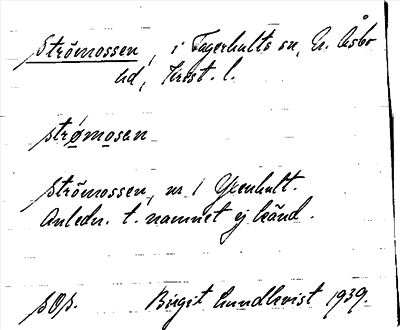 Strömossen, i Fagerhults sn, N. Åsbo
hd, Krist. l.
strømosen
Strömossen, nr 1 Yxenhult.
Anledn. t. namnet ej känd.
Birgit Lundkvist 1939.